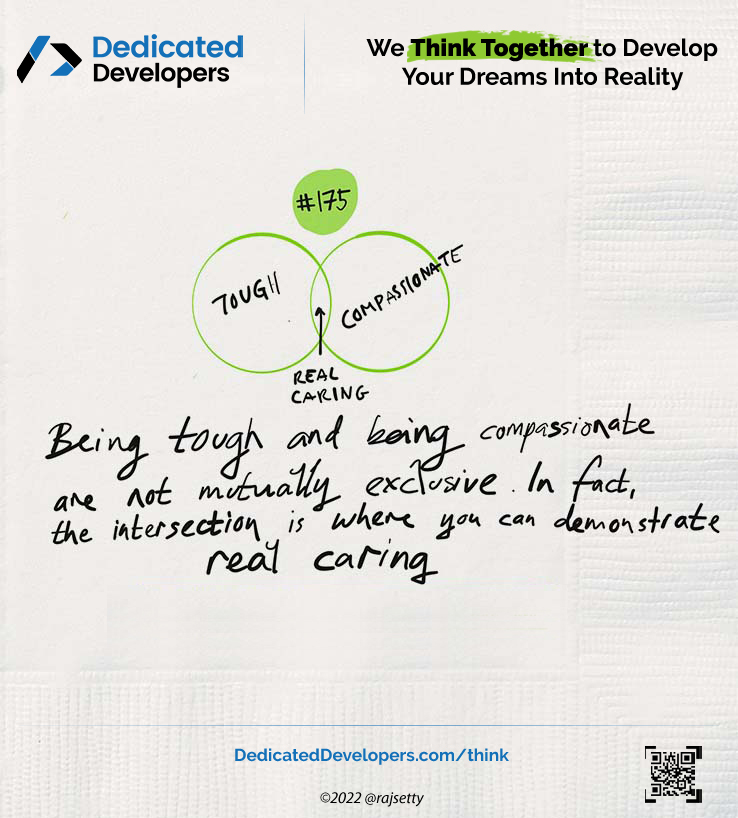 Dedicated
Developers
We Think Together to Develop
Your Dreams Into Reality
#175
TOUGH
COMPASSIONATE
REAL
CARING
Being tough and being compassionate
are not mutually exclusive. In fact,
the intersection is where you can demonstrate
real caring
DedicatedDevelopers.com/think
©2022 @rajsetty